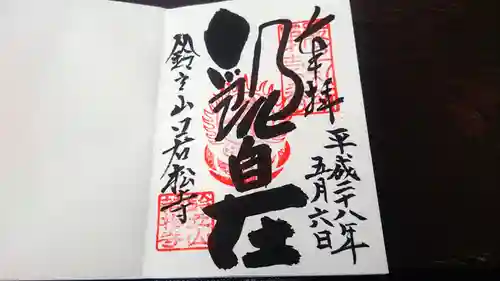 奉拝
平成二十八年
五月六日
観自在
鈴立山若松寺